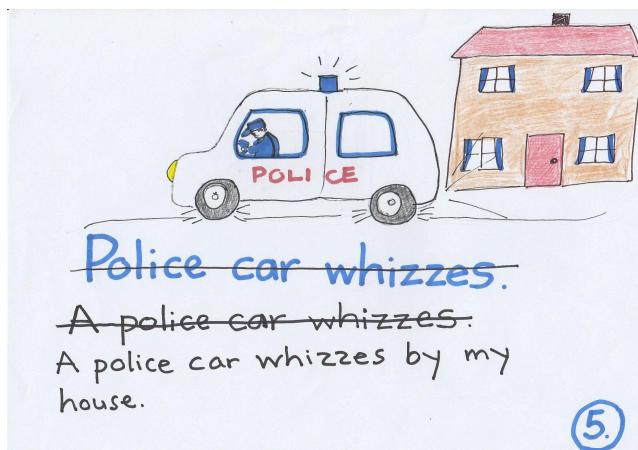 POLICE
Police car whizzes.
A police car whizzes.
A police car whizzes by my
house.
5.